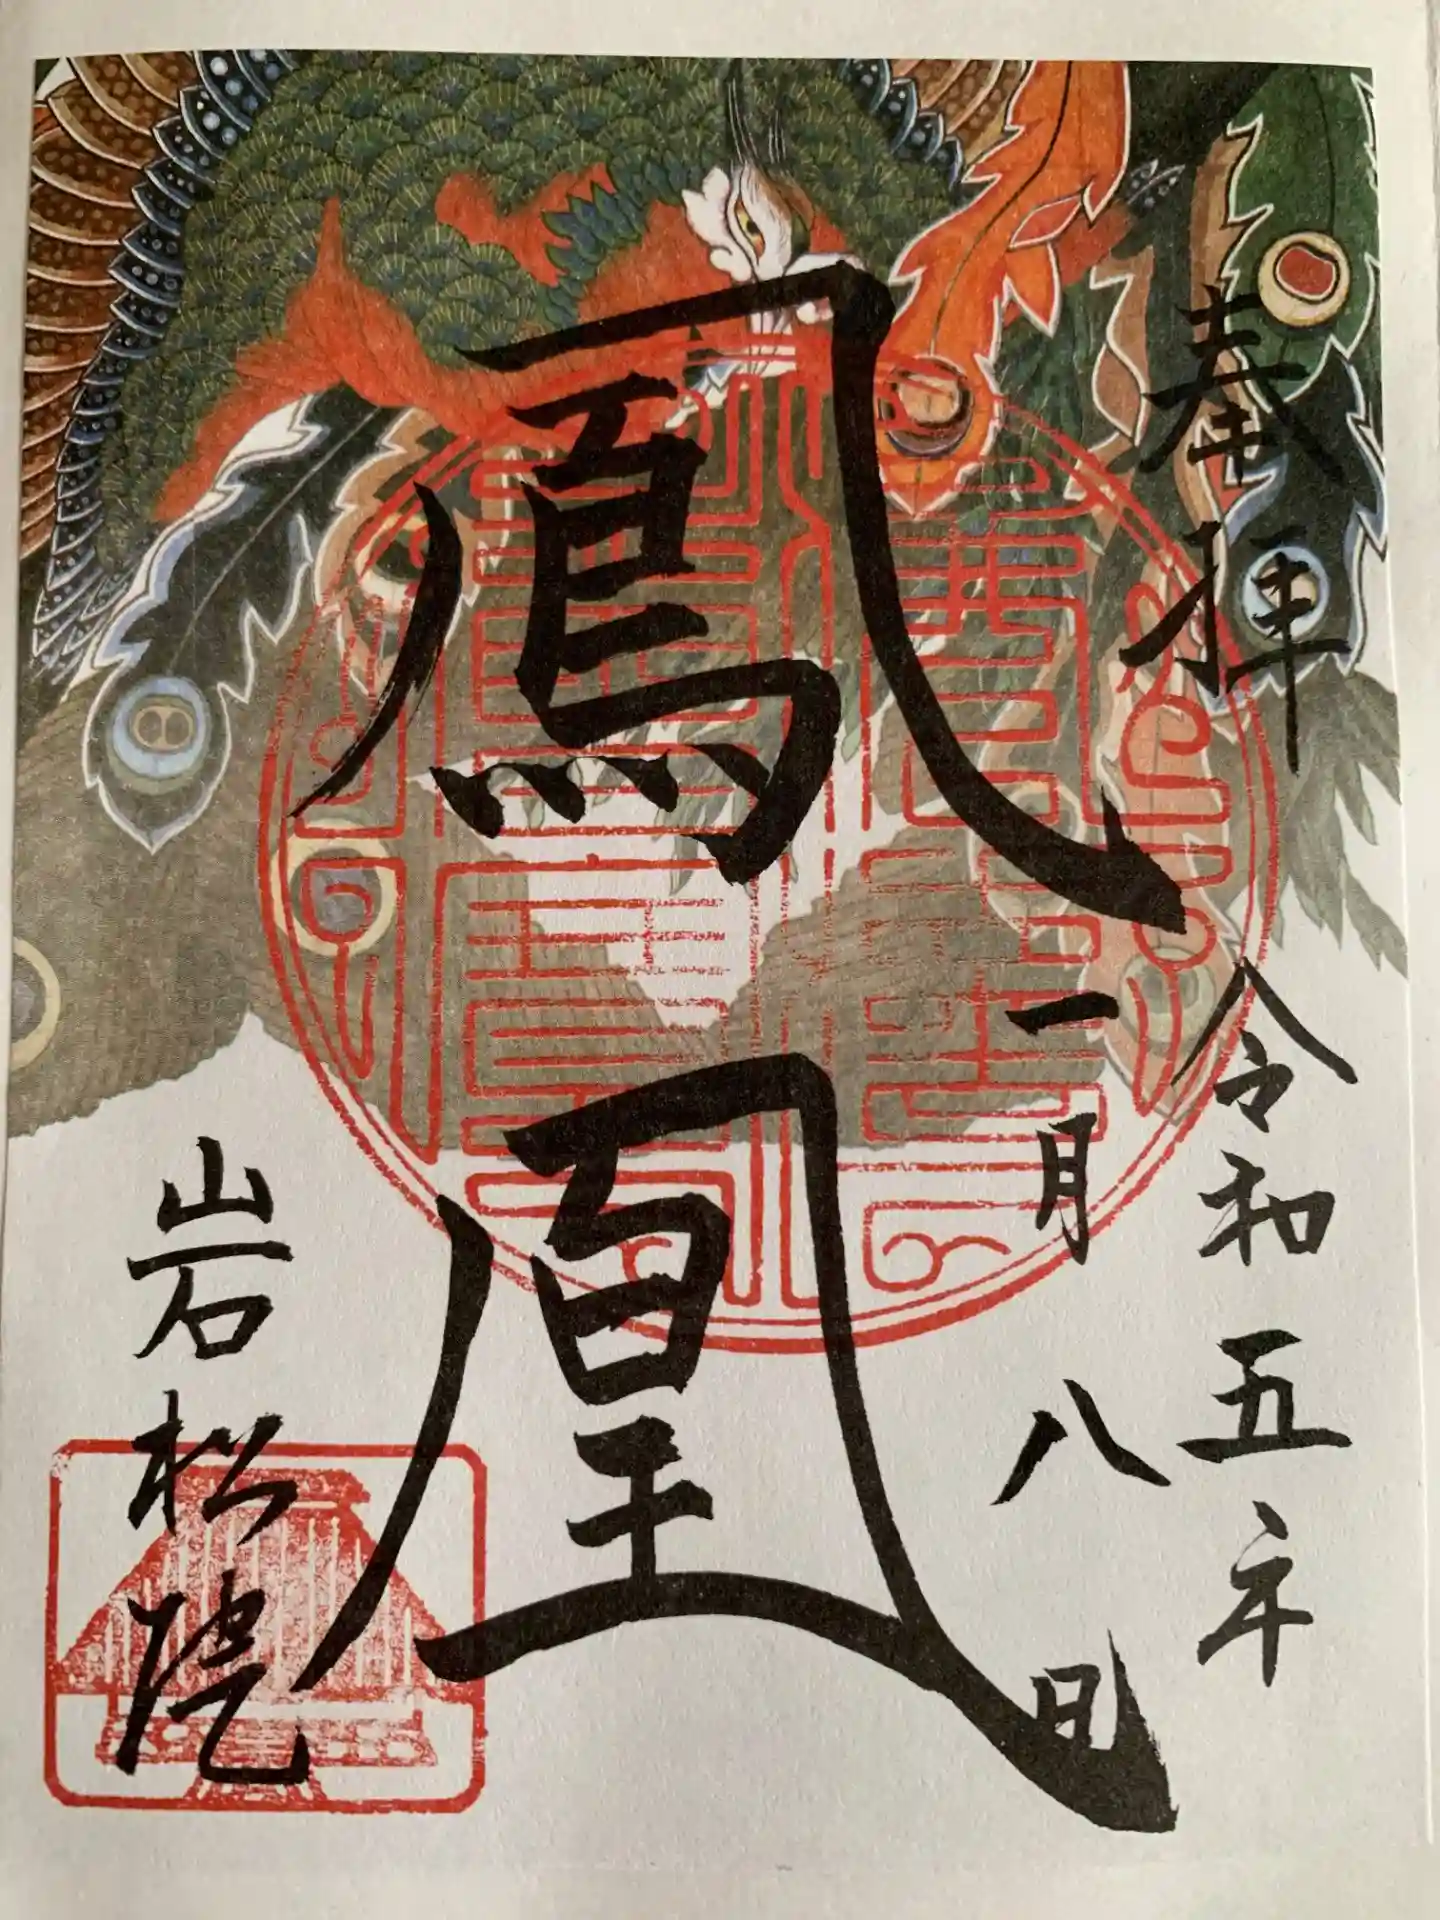 奉拝
令和五年
一月八日
鳳凰
岩松院